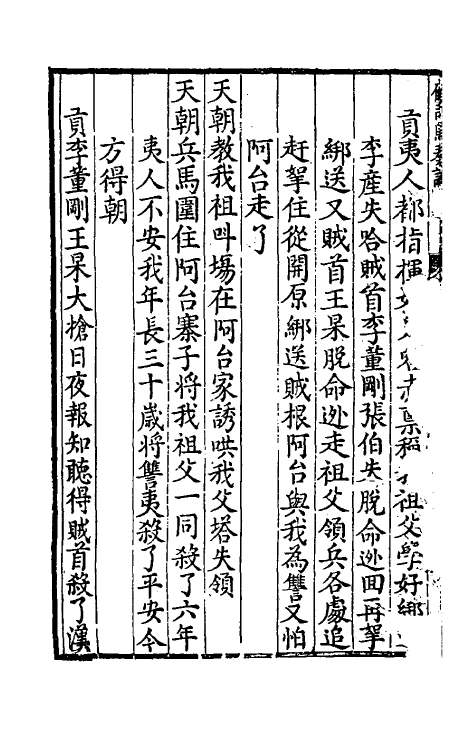 貢夷人都指揮 稟稱 祖父學好綁
李產失哈賊首李董剛張伯失脫命迯回再拏
綁送又賊首王杲脫命迯走祖父領兵各處追
赶拏住從開原綁送賊根阿台與我為讐又怕
阿台走了
天朝教我祖呌場在阿台家誘哄我父塔失領
天朝兵馬圍住阿台寨子將我祖父一同殺了六年
夷人不安我年長三十歲將讐夷殺了平安今
方得朝
貢李董剛王杲大搶日夜報知聽得賊首殺了漢